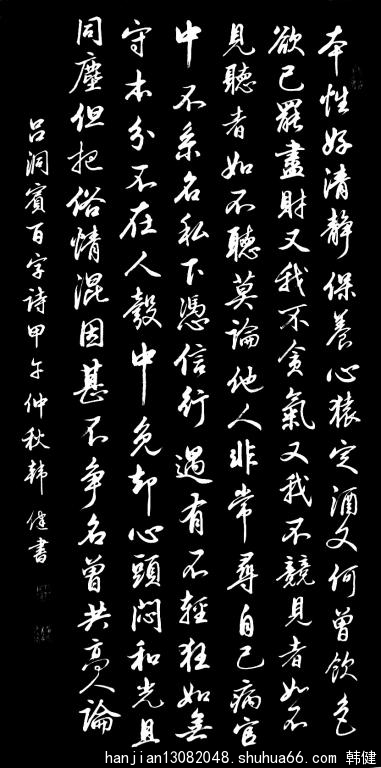 本性好清静保養心猿定酒又何曾飲色
欲已罷盡財又我不貪氣又我不競見者如不
見聽者如不聽莫論他人非常尋自己病官
中不系名私下憑信行遇有不輕狂如無
守本分不在人彀中免却心頭悶和光且
同塵但把俗情混因甚不争名曾共高人論
吕洞賓百字詩甲午仲秋韩健書
hanjian13082048.shuhua66.com 韩健